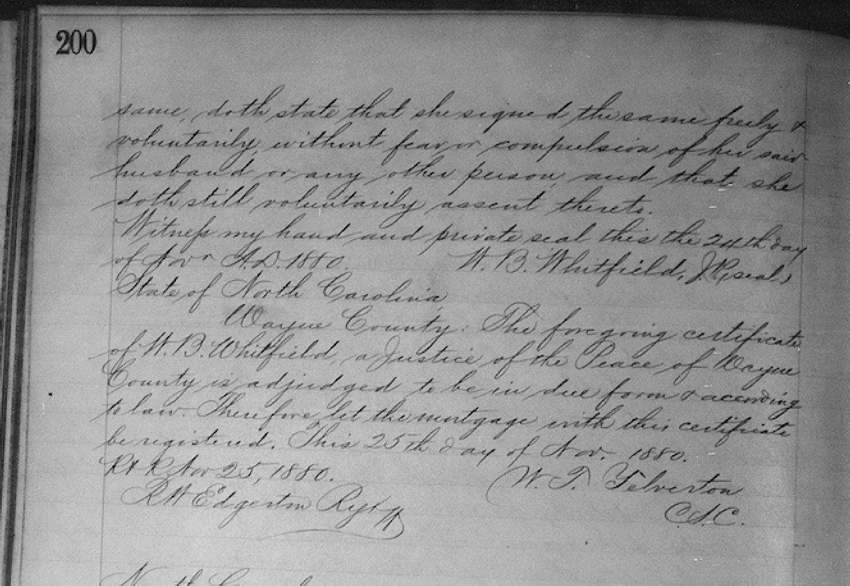 200
same, doth state that she signed the same freely &
voluntarily without fear or compulsion of her said
husband or any other person, and that she
doth still voluntarily assent thereto.
Witness my hand and private seal this the 24th day
of Novr A.D. 1880. W. B. Whitfield, J.P. (seal)
State of North Carolina
Wayne County: The foregoing certificate
of W. B. Whitfield, a Justice of the Peace of Wayne
County is adjudged to be in due form & according
to law. Therefore let the mortgage with this certificate
be registered. This 25th day of Nov. 1880.
R & R Nov 25, 1880. W. T. Yelverton
RH Edgerton Regr C.S.C.
North